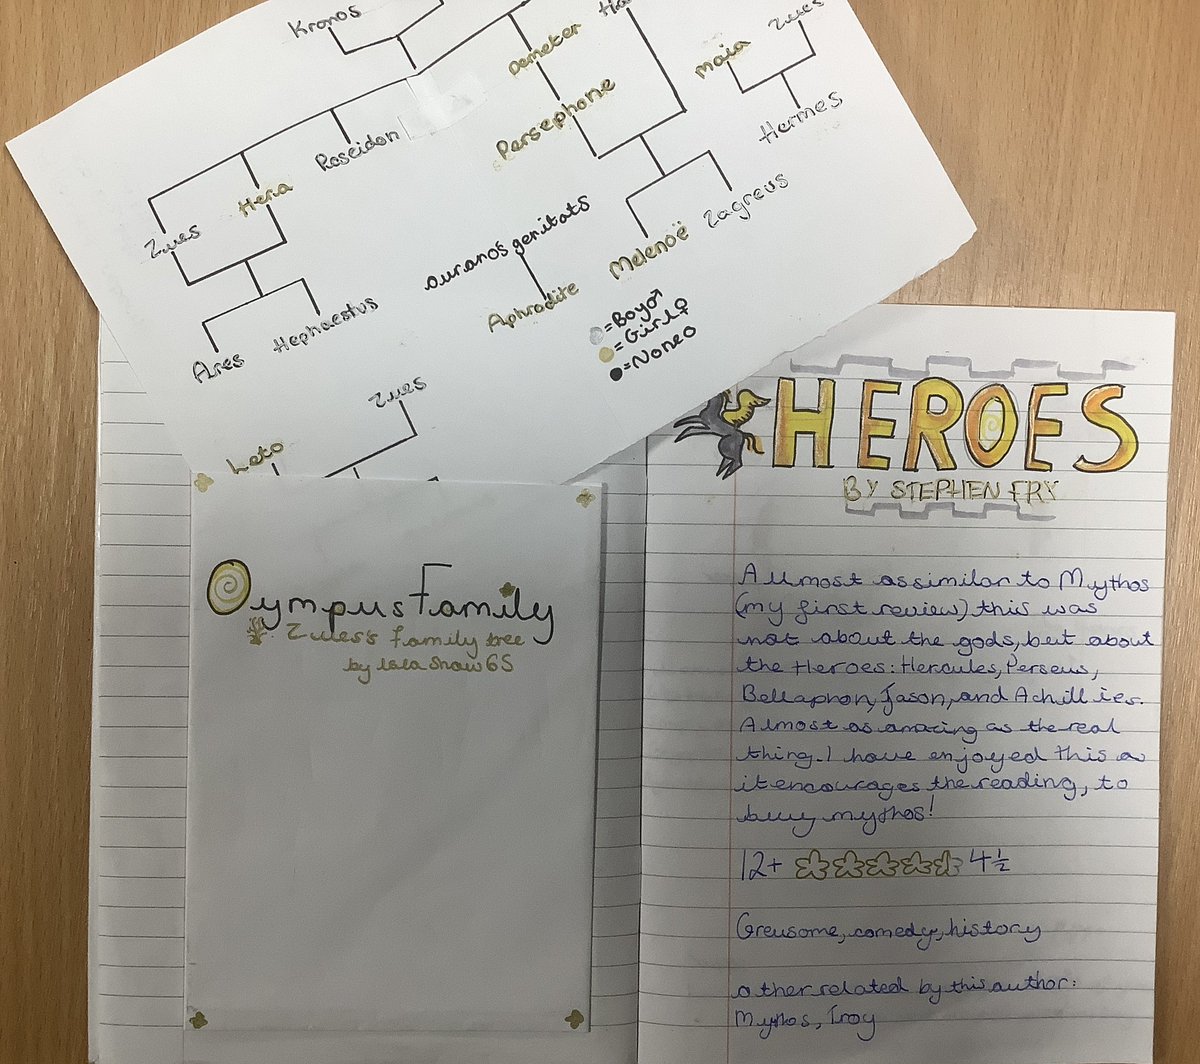 Kronos
Demeter
Zues
Maia
Persephone
Hermes
Poseidon
Hera
Zues
Zagreus
Melenoë
ouranos genitats
Aphrodite
Hephaestus
Ares
=Boyo♂
=Girl♀
=Noneo
Zues
Leto
Olympus Family
Zules's family tree
by Isla Shaw 6S
HEROES
BY STEPHEN FRY
Allmost as similar to Mythos
(my first review) this was
not about the gods, but about
the Heroes: Hercules, Perseus,
Bellaphon, Jason, and Achillies.
Almost as amazing as the real
thing. I have enjoyed this a
it encourages the reading, to
buy mythos!
12+ 4½
Greusome, comedy, history
other related by this author:
Mythos, Troy